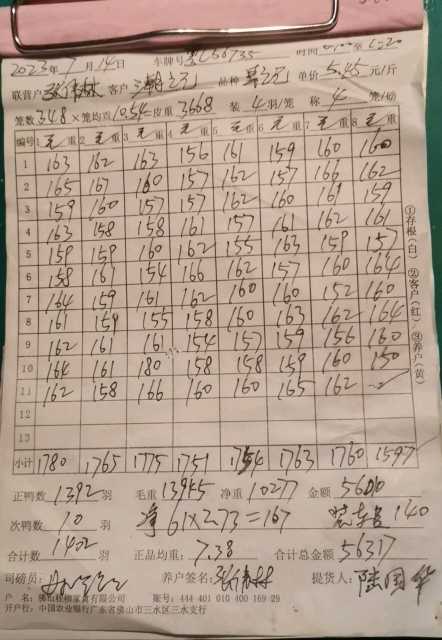 2023年7月14日 车牌号 时间
联营户 客户 品种 单价5.45元/斤
笼数348×笼均重10.54=皮重3668 装4羽/笼 称4笼/纺
编号 1 毛重 2 毛重 3 毛重 4 毛重 5 毛重 6 毛重 7 毛重 8 毛重
1 163 162 163 156 161 159 160 160
2 165 167 160 157 162 157 166 162
3 159 160 157 157 162 160 161 159
4 163 158 158 161 157 161 162 161
5 159 159 160 162 155 163 159 157
6 158 161 154 166 162 157 160 164
7 164 159 161 162 160 160 152 160
8 161 159 155 158 160 163 162 164
9 162 161 161 154 157 159 156 160
10 164 161 180 158 158 159 160 150
11 162 158 166 160 160 165 162
12
13
小计 1780 1765 1775 1751 1754 1763 1760 1597
正鸭数1392羽 毛重13945 净重10277 金额56010
次鸭数10羽 净61×2.73=167 140
合计数1402羽 正品均重:7.38 合计总金额56317
司磅员: 养户签名: 提货人:陆国华
账号:444 401 010 400 169 29
开户行:中国农业银行广东省佛山市三水区三水支行
①存根(白) ②客户(红) ③养户(黄)